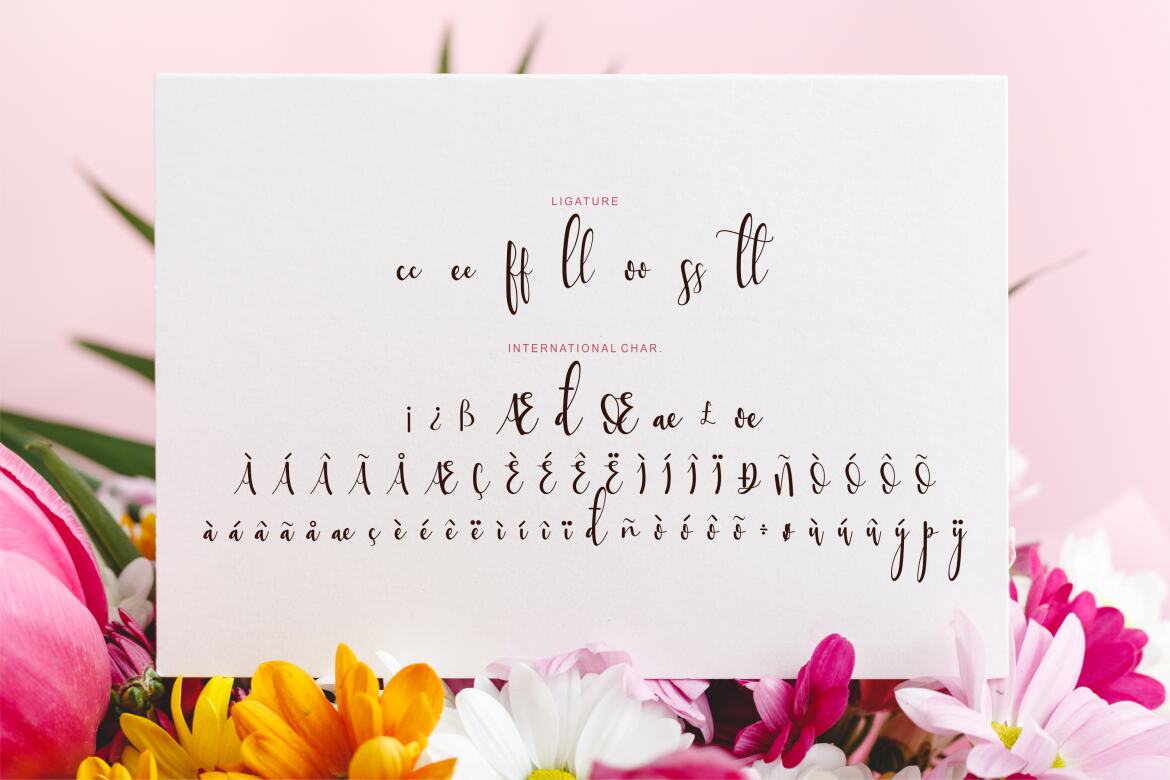 LIGATURE
cc ee ff ll oo ss tt
INTERNATIONAL CHAR.
¡ ¿ ß Æ đ Œ æ £ œ
À Á Â Ã Å Æ Ç È É Ê Ë Ì Í Î Ï Đ Ñ Ò Ó Ô Õ
à á â ã å æ ç è é ê ë ì í î ï đ ñ ò ó ô õ ÷ ø ù ú û ý þ ÿ